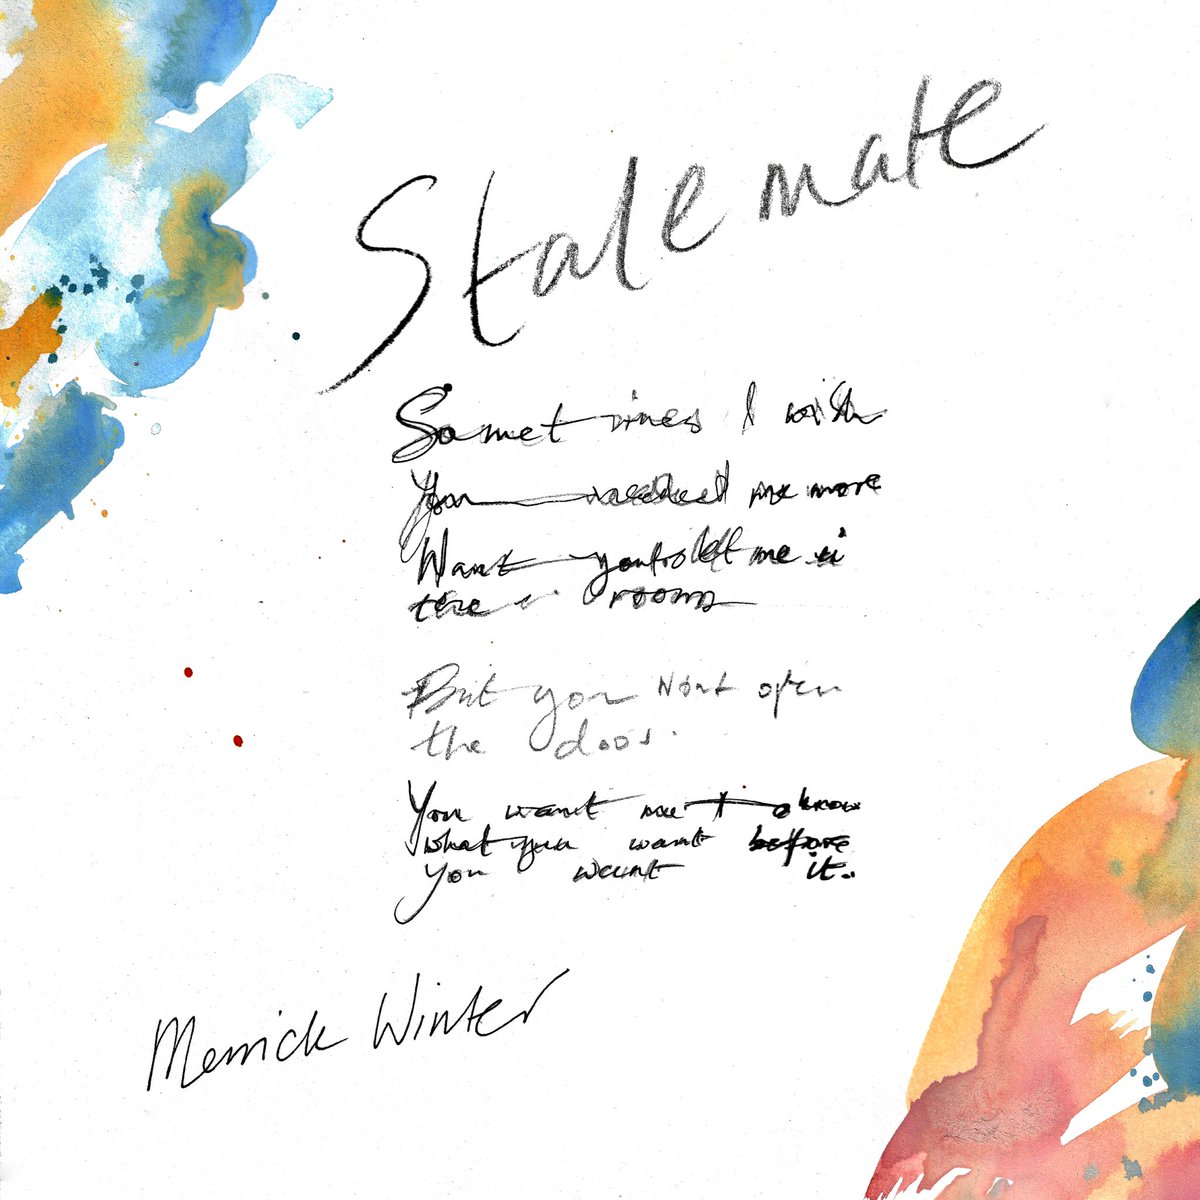 Stalemate
Sometimes I wish
You needed me more
Want you to let me in
the room
But you wont open
the door.
You want me to know
what you want before
you want it..
Merrick Winter